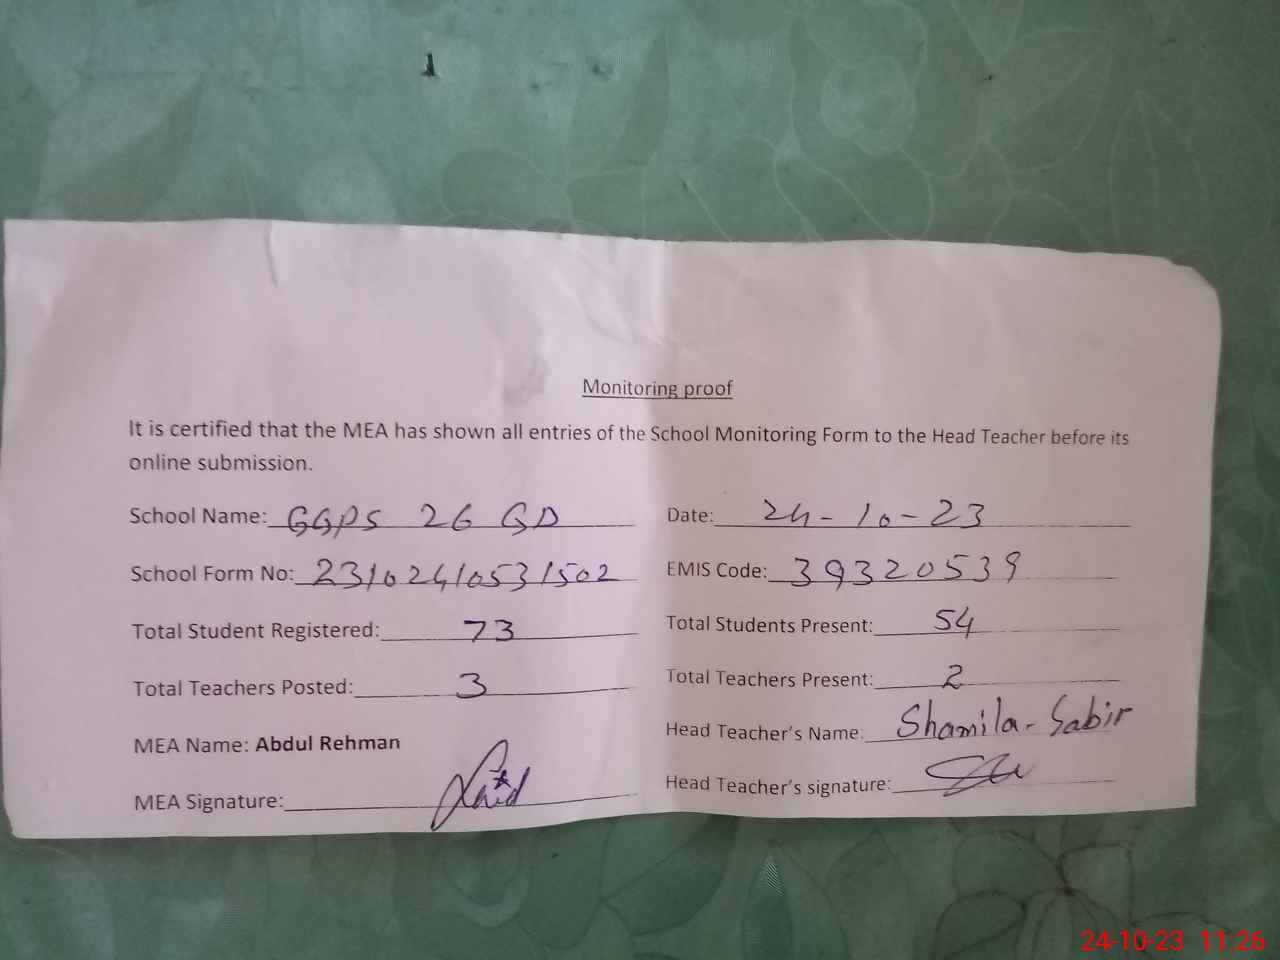 Monitoring proof
It is certified that the MEA has shown all entries of the School Monitoring Form to the Head Teacher before its
online submission.
School Name: GGPS 26 GD Date: 24-10-23
School Form No: 23102410531502 EMIS Code: 39320539
Total Student Registered: 73 Total Students Present: 54
Total Teachers Posted: 3 Total Teachers Present: 2
MEA Name: Abdul Rehman Head Teacher's Name: Shamila - Sabir
MEA Signature: Head Teacher's signature:
24-10-23 11:26